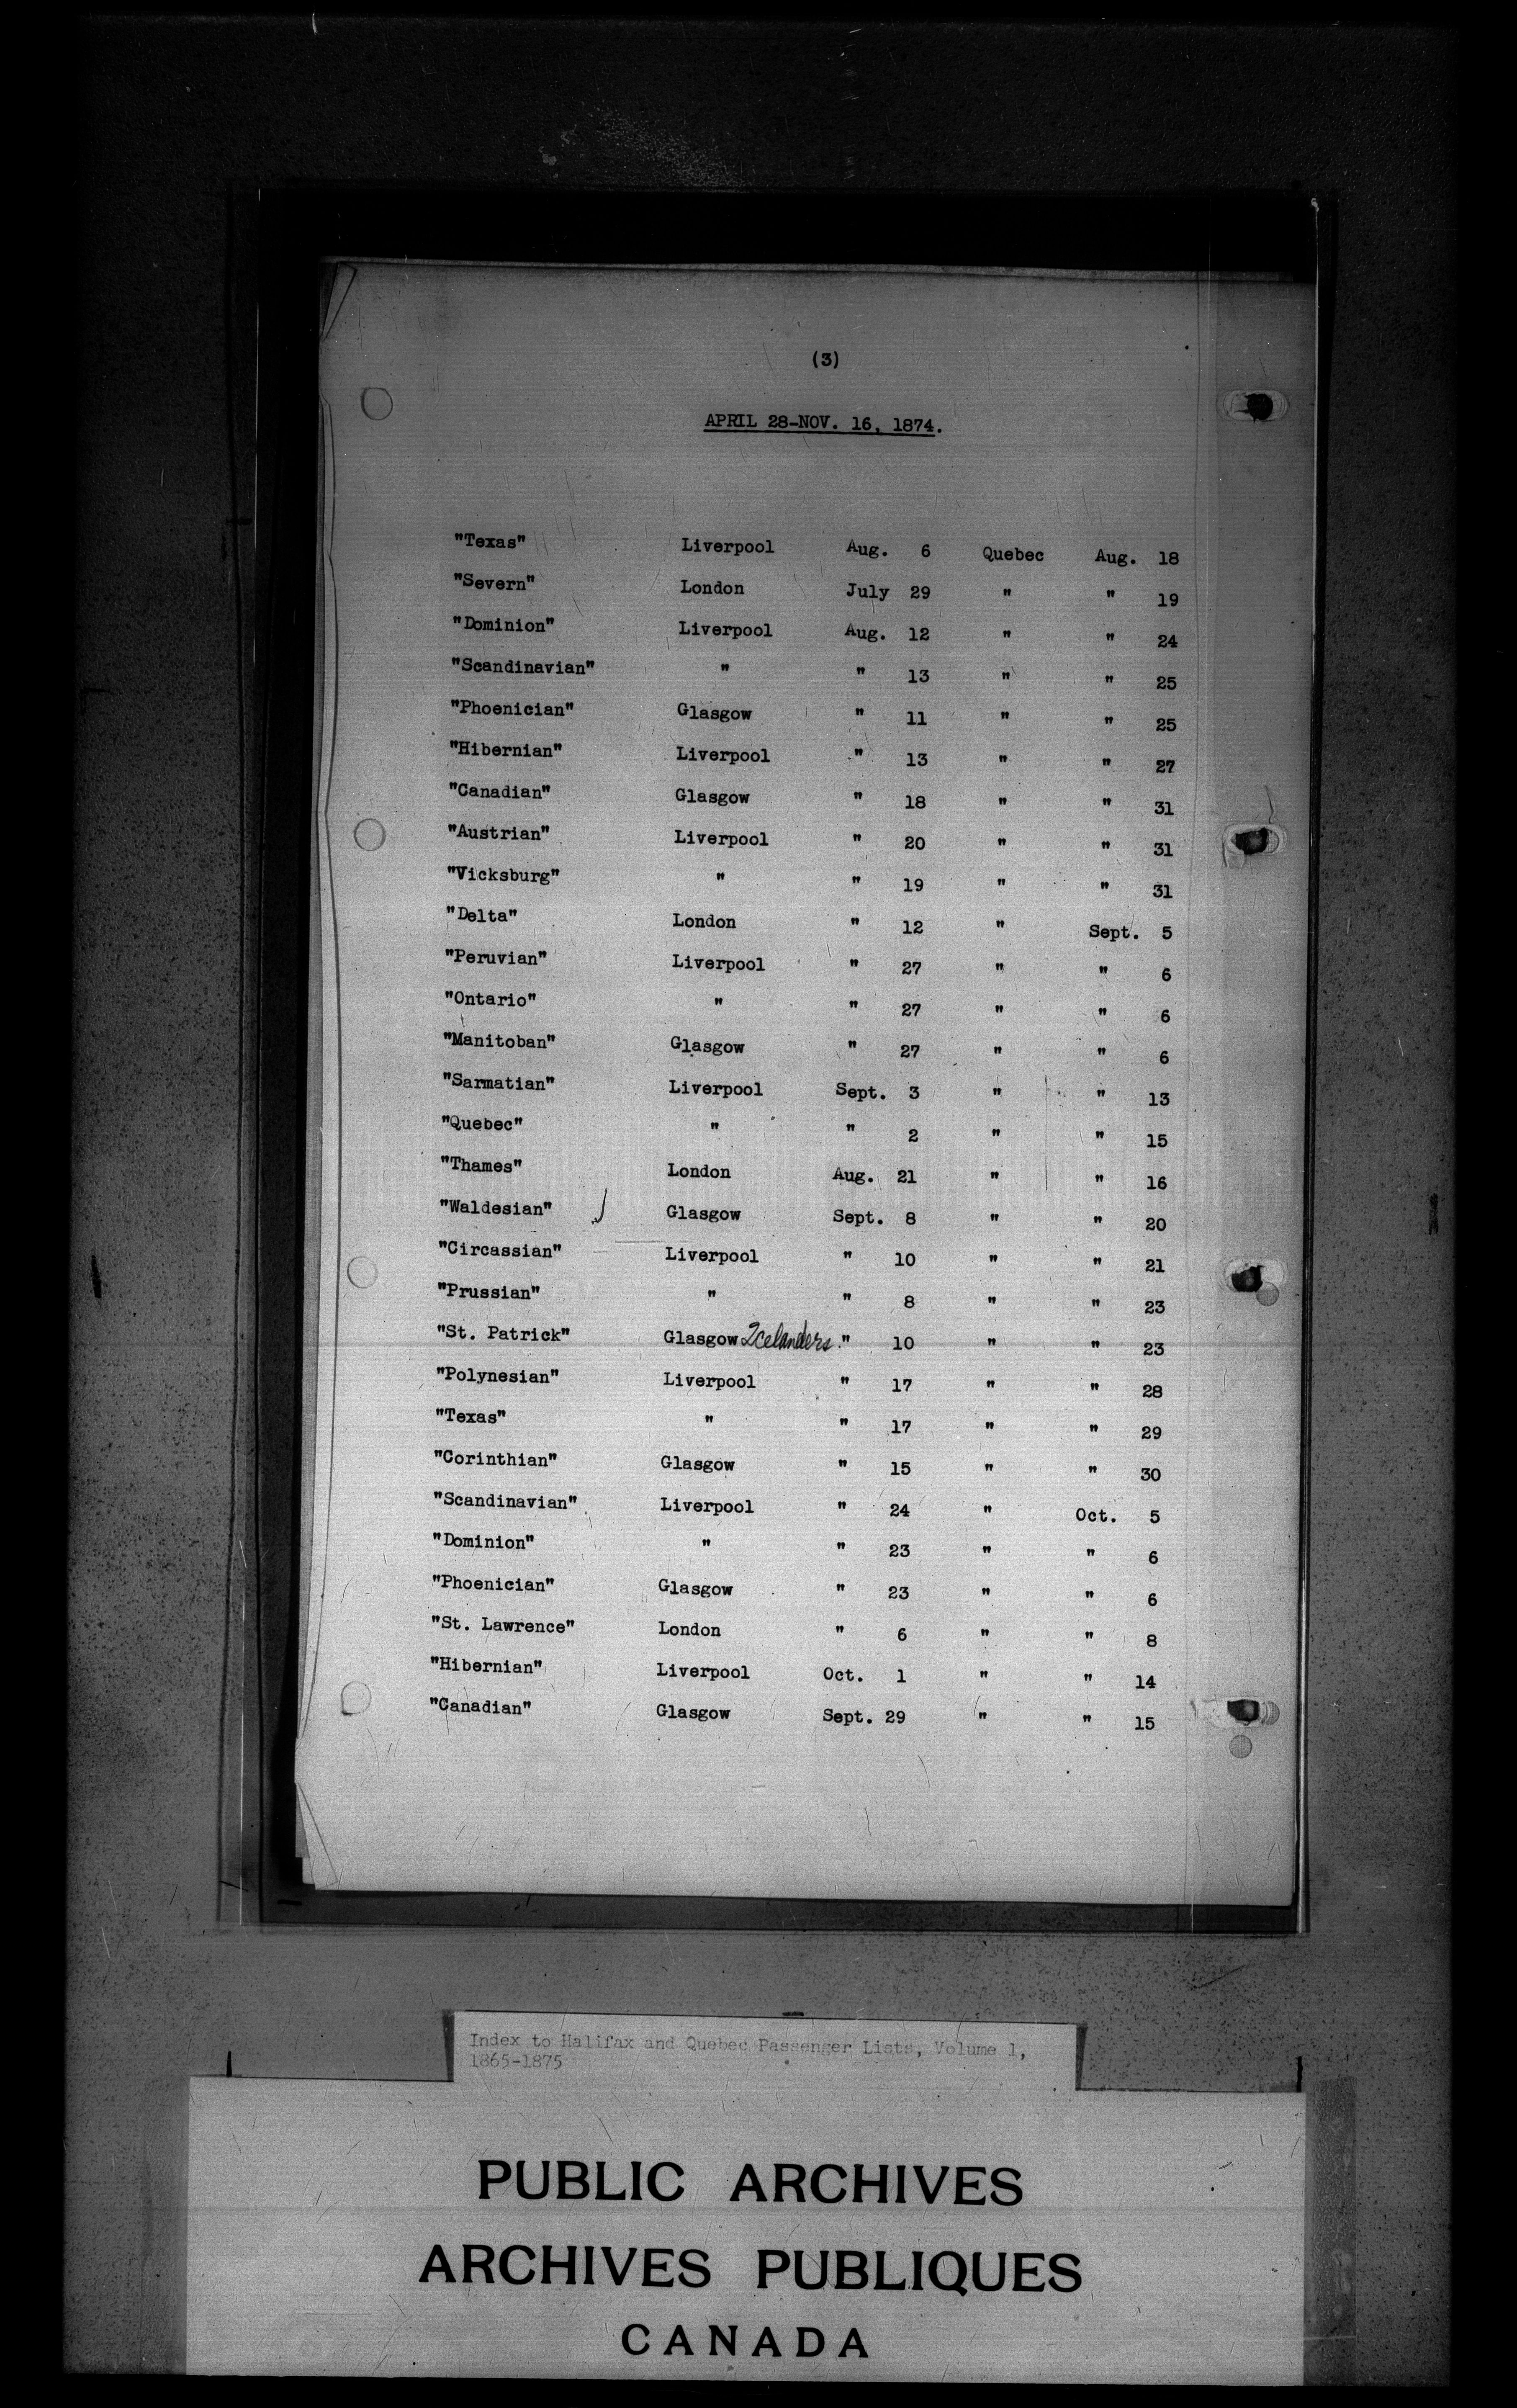 (3)
APRIL 28-NOV. 16, 1874.
"Texas" Liverpool Aug. 6 Quebec Aug. 18
"Severn" London July 29 " " 19
"Dominion" Liverpool Aug. 12 " " 24
"Scandinavian" " " 13 " " 25
"Phoenician" Glasgow " 11 " " 25
"Hibernian" Liverpool " 13 " " 27
"Canadian" Glasgow " 18 " " 31
"Austrian" Liverpool " 20 " " 31
"Vicksburg" " " 19 " " 31
"Delta" London " 12 " Sept. 5
"Peruvian" Liverpool " 27 " " 6
"Ontario" " " 27 " " 6
"Manitoban" Glasgow " 27 " " 6
"Sarmatian" Liverpool Sept. 3 " " 13
"Quebec" " " 2 " " 15
"Thames" London Aug. 21 " " 16
"Waldesian" Glasgow Sept. 8 " " 20
"Circassian" Liverpool " 10 " " 21
"Prussian" " " 8 " " 23
"St. Patrick" Glasgow Icelanders " 10 " " 23
"Polynesian" Liverpool " 17 " " 28
"Texas" " " 17 " " 29
"Corinthian" Glasgow " 15 " " 30
"Scandinavian" Liverpool " 24 " Oct. 5
"Dominion" " " 23 " " 6
"Phoenician" Glasgow " 23 " " 6
"St. Lawrence" London " 6 " " 8
"Hibernian" Liverpool Oct. 1 " " 14
"Canadian" Glasgow Sept. 29 " " 15
Index to Halifax and Quebec Passenger Lists, Volume 1,
1865-1875
PUBLIC ARCHIVES
ARCHIVES PUBLIQUES
CANADA